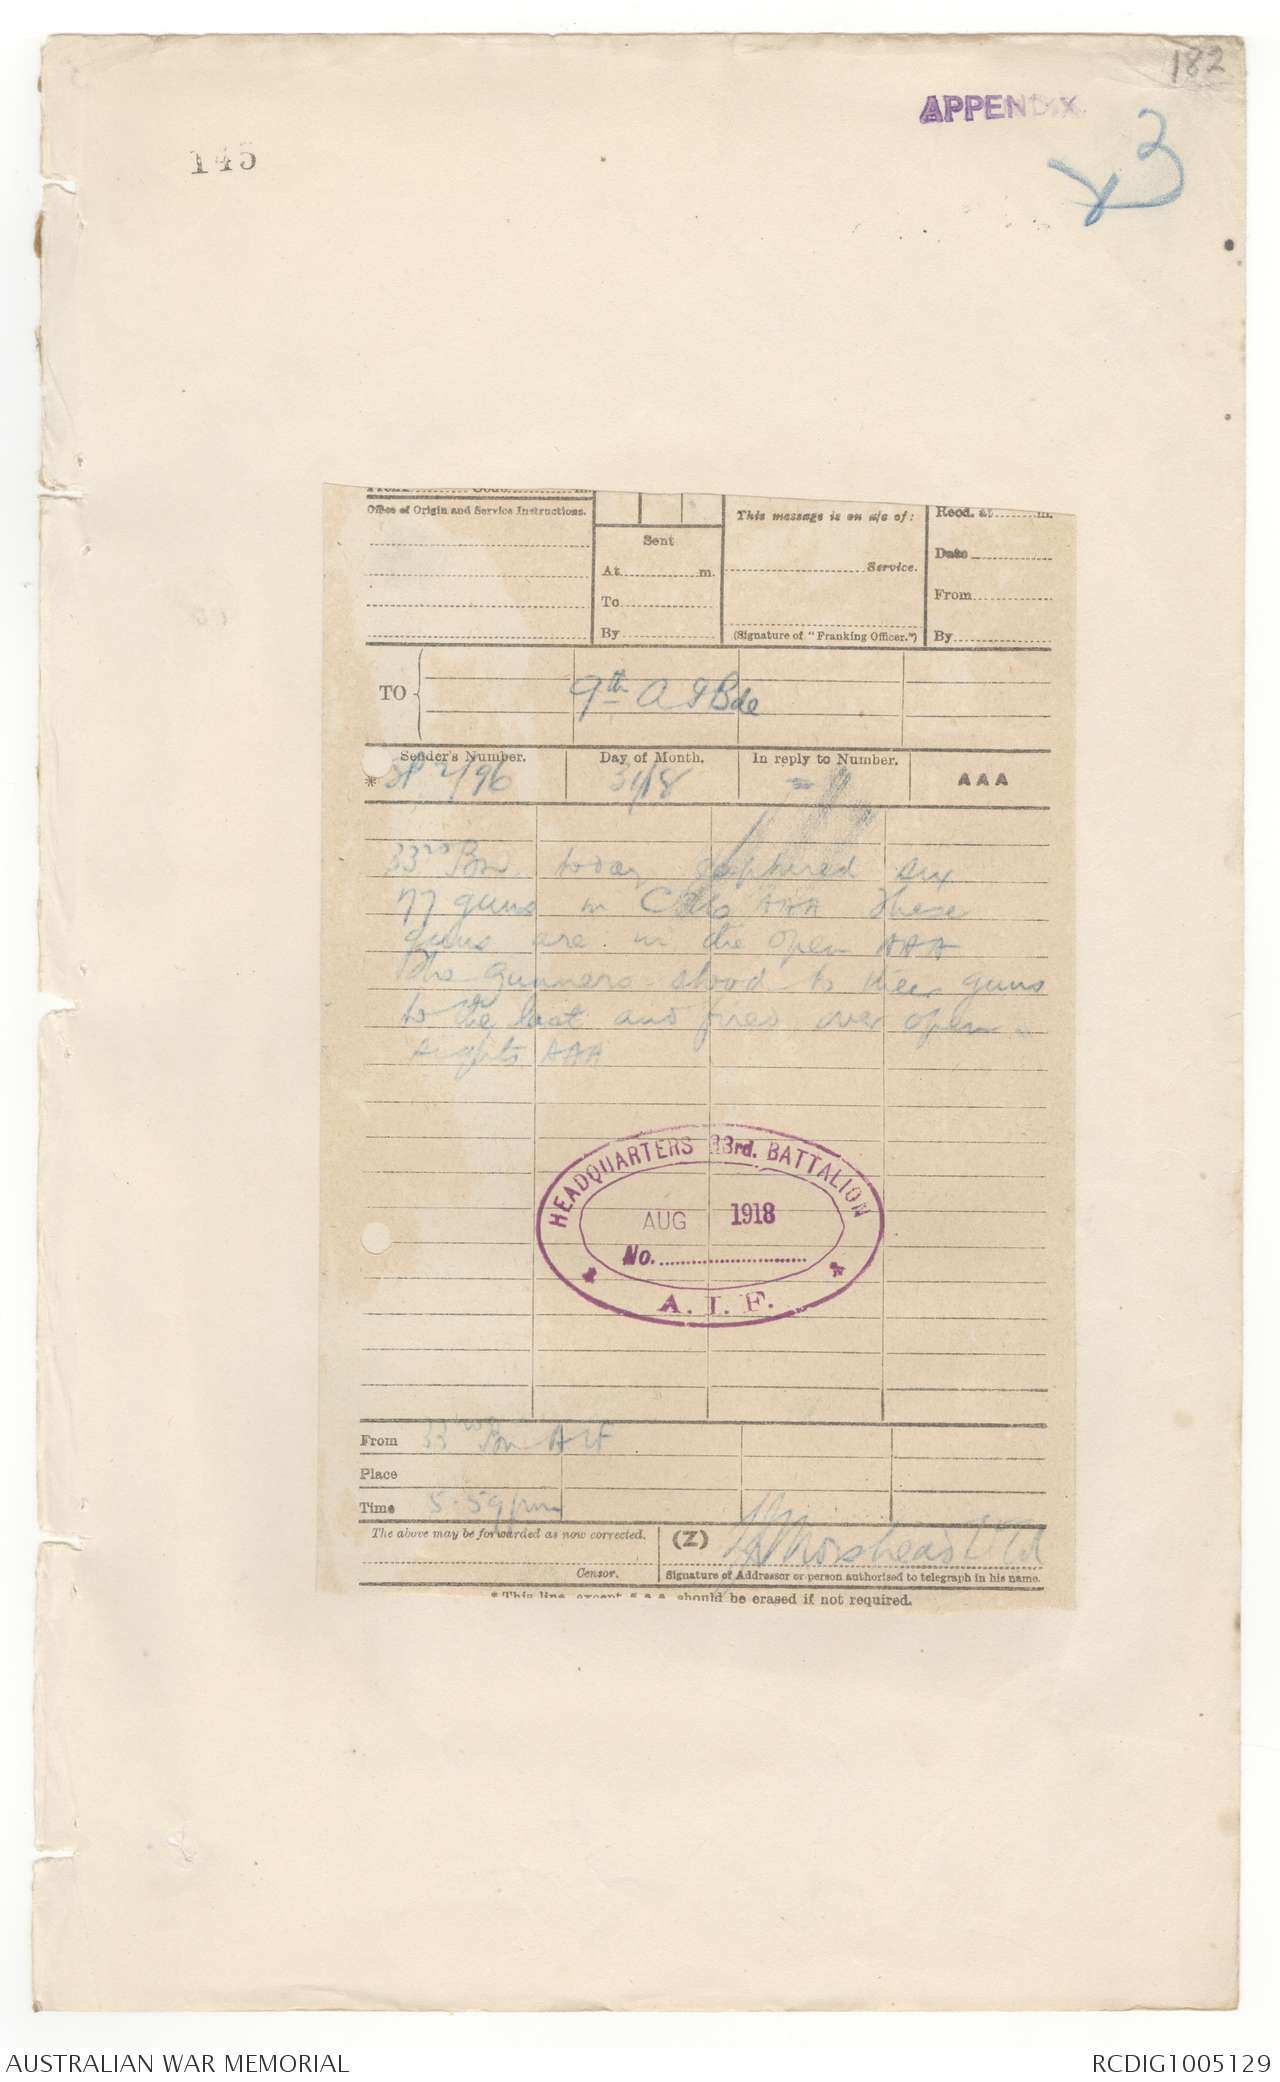 182
APPENDIX.
y3
145
Office of Origin and Service Instructions.
Sent
At m.
To
By
This message is on a/c of:
Service.
(Signature of "Franking Officer.")
Recd. at m.
Date
From
By
TO
9th A I Bde
Sender's Number.
Day of Month.
In reply to Number.
AAA
* 2/96
31/8
33rd Bn. today captured six
77 guns in AAA These
guns are in the open AAA
The Gunners stood to their guns
to the last and fired over open
sights AAA
HEADQUARTERS 33rd. BATTALION
AUG 1918
No.
A. I. F.
From 33rd Bn AIF
Place
Time 5.59 pm
The above may be forwarded as now corrected.
(Z)
Morshead Lt Col
Censor.
Signature of Addressor or person authorised to telegraph in his name.
* This line, except A A A, should be erased if not required.
AUSTRALIAN WAR MEMORIAL
RCDIG1005129